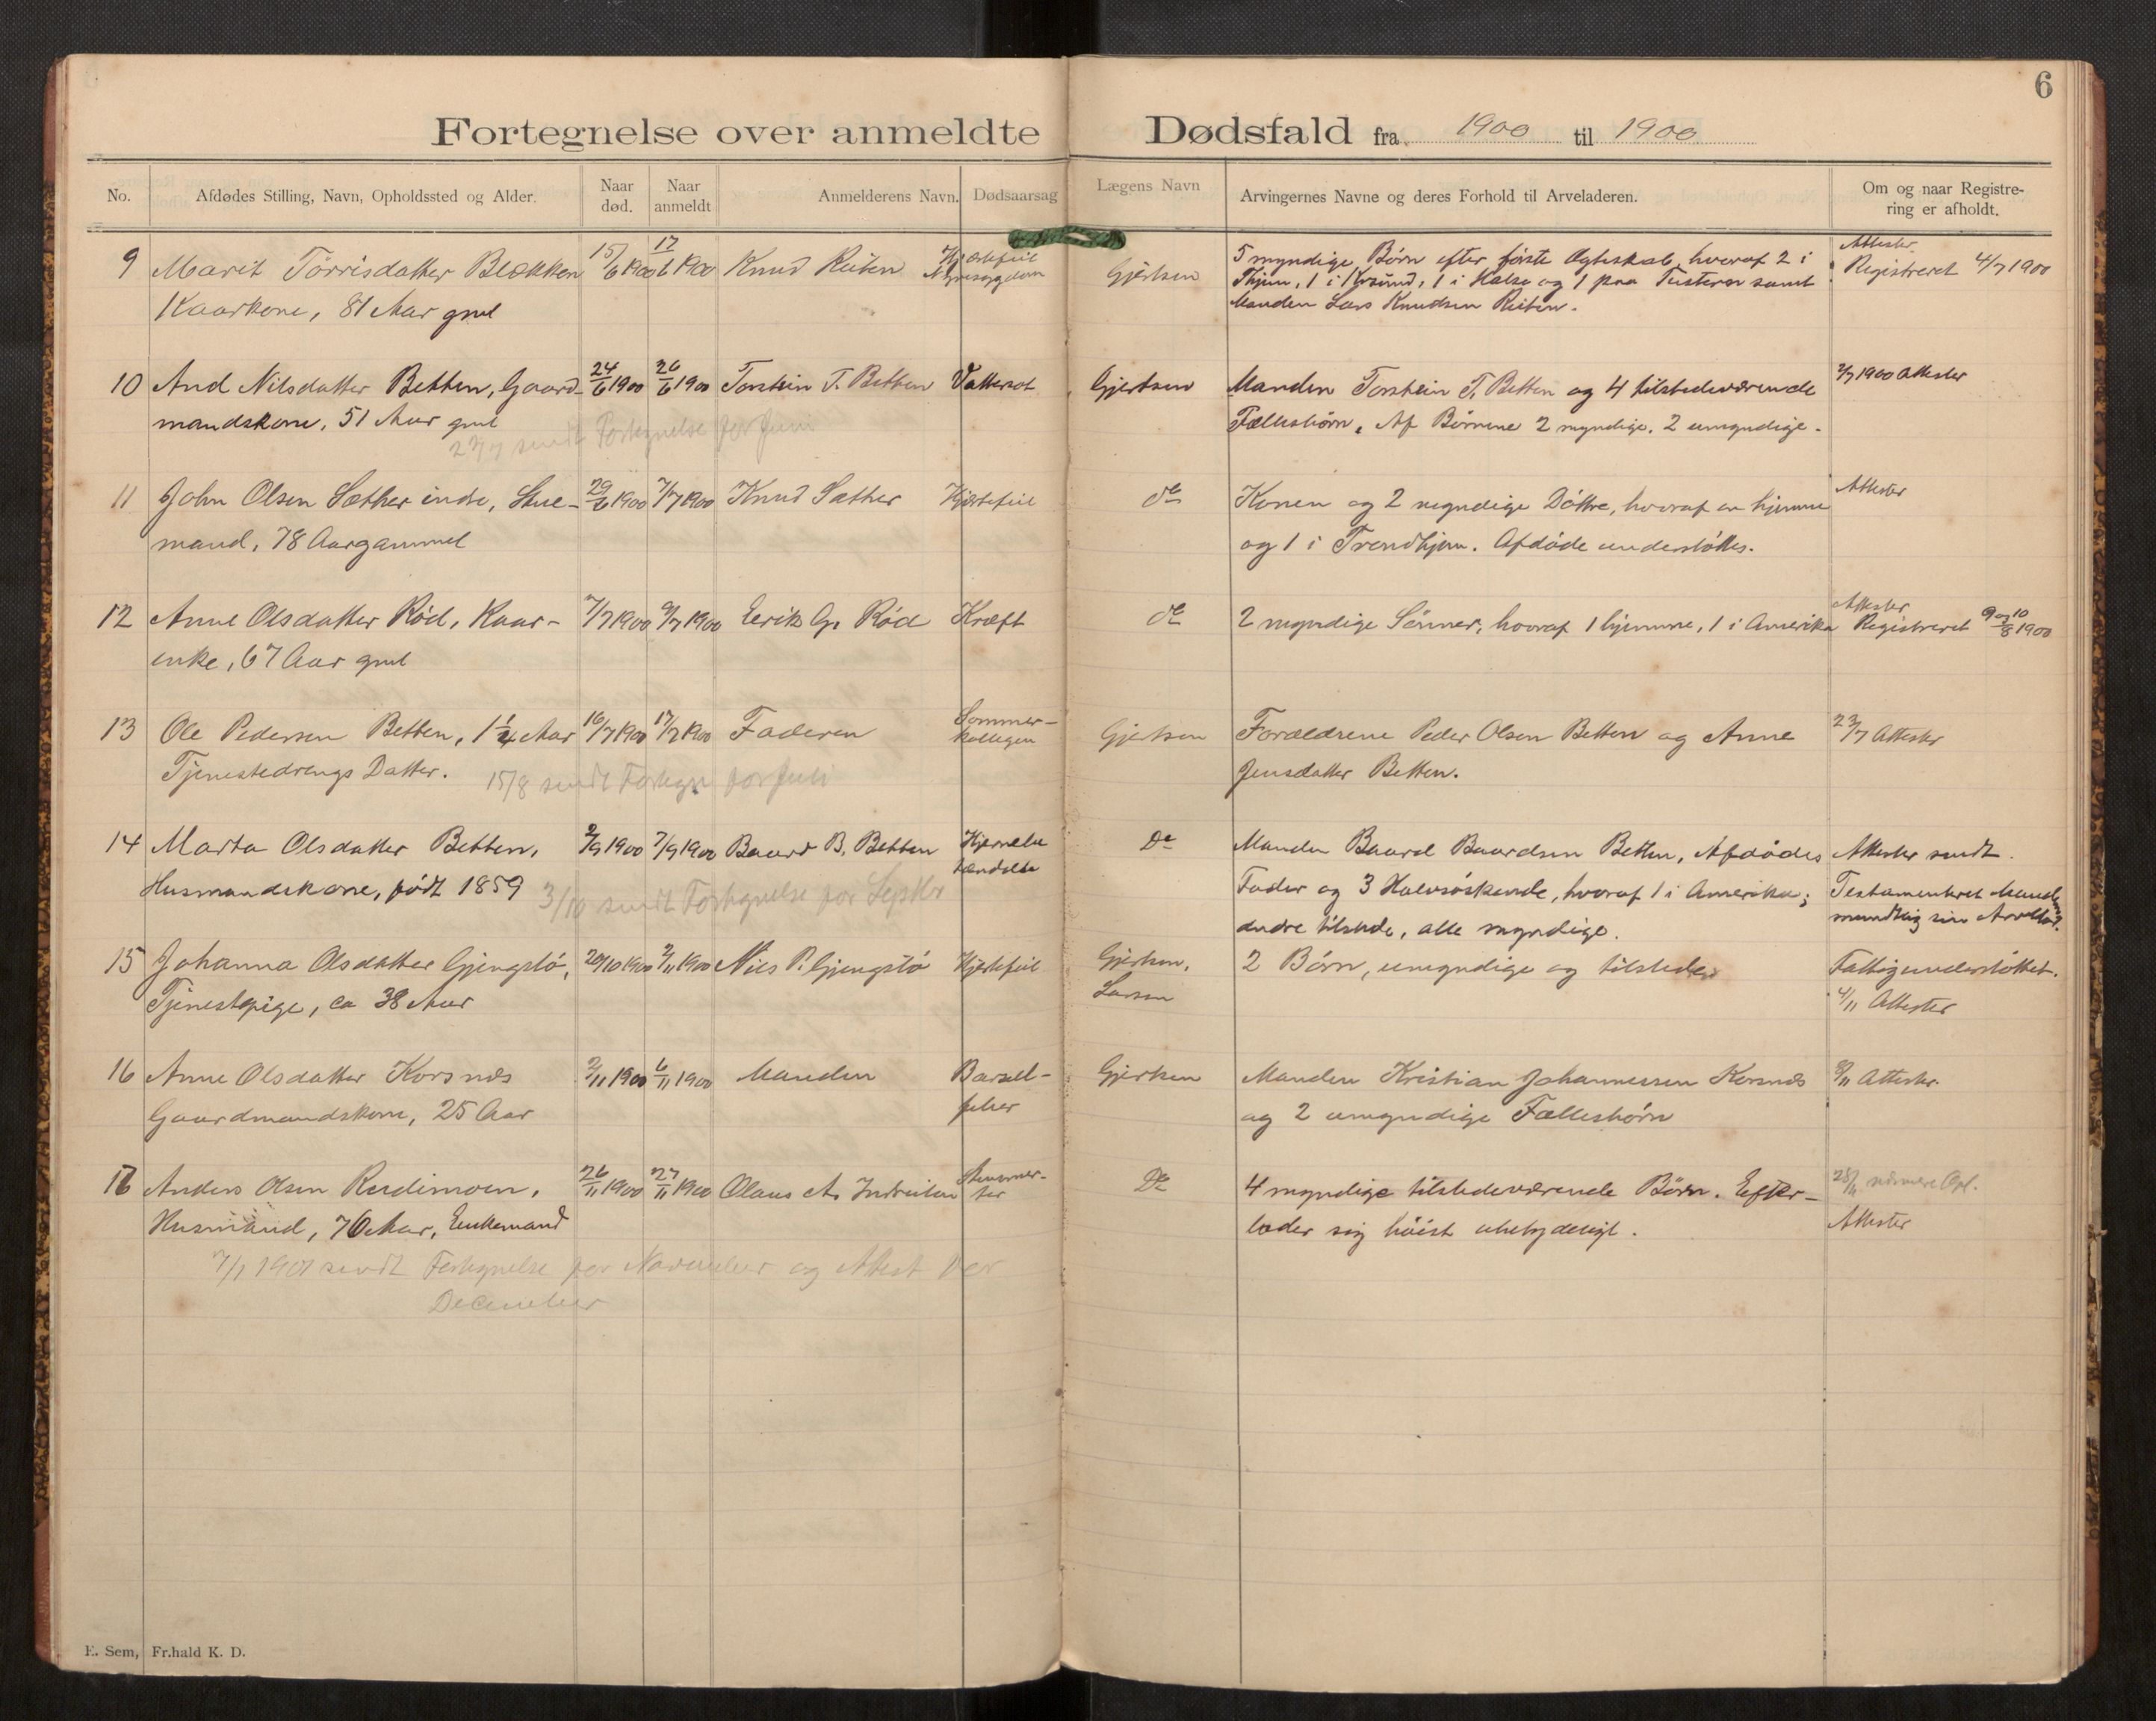 6
Fortegnelse over anmeldte Dødsfald fra 1900 til 1900
No. Afdødes Stilling, Navn, Opholdssted og Alder. Naar død. Naar anmeldt Anmelderens Navn. Dødsaarsag Lægens Navn Arvingernes Navne og deres Forhold til Arveladeren. Om og naar Registrering er afholdt.
9 Marit Tørrisdatter Blækken 15/6 1900 17/6 1900 Knud Reiten Hjertefeil Gjertsen 5 myndige Børn efter første Ægteskab, hvoraf 2 i Attester
Kaarkone, 81 Aar gml Nyresygdom Thjem, 1 i Krsund, 1 i Halsa og 1 paa Tustern samt Registreret 4/7 1900
Manden Lars Knudsen Reiten.
10 And Nilsdatter Betten, Gaard- 24/6 1900 26/6 1900 Torstein T. Betten Vattersot Gjertsen Manden Torstein T. Betten og 4 tilstedeværende 2/7 1900 Attester
mandskone, 51 Aar gml Fællesbørn. Af Børnene 2 myndige, 2 umyndige.
sendt Fortegnelse for Juni
11 John Olsen Sæther indre, Stue- 29/6 1900 7/7 1900 Knud Sæther Hjertefeil do Konen og 2 myndige Døttre, hvoraf en hjemme Attester
mand, 78 Aar gammel og 1 i Trondhjem. Afdøde understøttes.
12 Anne Olsdatter Rød, Kaar- 7/7 1900 9/7 1900 Eerik G. Rød Kræft do 2 myndige Sønner, hvoraf 1 hjemme, 1 i Amerika Attester
enke, 67 Aar gml Registreret 9 og 10/8 1900
13 Ole Pedersen Betten, 1 1/4 Aar 16/7 1900 17/7 1900 Faderen Sommer- Gjertsen Forældrene Peder Olsen Betten og Anne 23/7 Attester
Tjenestedrengs Datter. kollegen Jensdatter Betten.
15/8 sendt Fortegn for Juli
14 Marta Olsdatter Betten, 2/9 1900 7/9 1900 Baard B. Betten Hjernebe- Do Manden Baard Baardsen Betten, Afdødes Attester sendt.
Husmandskone, født 1859 tændelse Fader og 3 Halvsøskende, hvoraf 1 i Amerika; Testamenteret Manden
3/10 sendt Fortegnelse for Septbr andre tilstede, alle myndige. mundtlig sin Arvelod.
15 Johanna Olsdatter Gjengstø, 29/10 1900 2/11 1900 Nils P. Gjengstø Hjertefeil Gjertsen, 2 Børn, umyndige og tilstede Fattigunderstøttet.
Tjenestepige, ca 38 Aar Larsen 4/11 Attester
16 Anne Olsdatter Korsnæs 2/11 1900 6/11 1900 Manden Barsel- Gjertsen Manden Kristian Johannessen Korsnæs 8/11 Attester.
Gaardmandskone, 25 Aar feber og 2 umyndige Fællesbørn
17 Anders Olsen Reedimoen, 26/11 1900 27/11 1900 Olaus A. Indreiten Do 4 myndige tilstedeværende Børn. Efter- 28/11 nærmere Opl.
Husmand, 76 Aar, Enkemand lader sig høist ubetydeligt. Attester
7/1 1901 sendt Fortegnelse for November og Attest for
December
E. Sem, Fr.hald K. D.